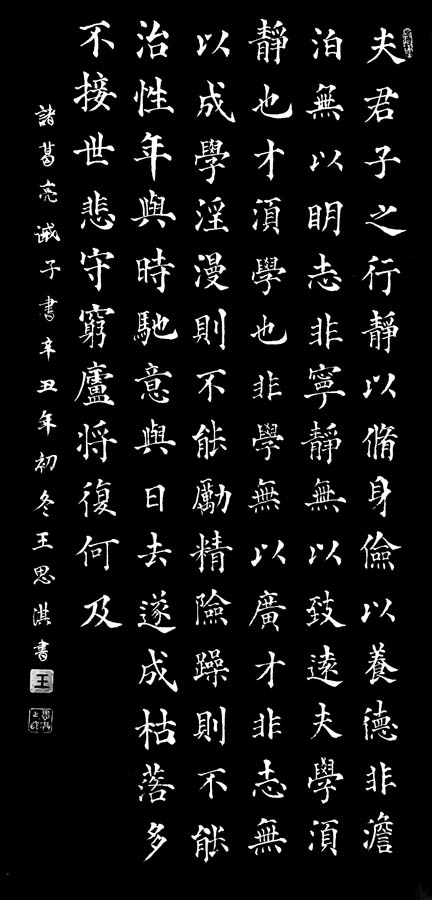 夫君子之行靜以脩身儉以養德非澹
泊無以明志非寧靜無以致遠夫學須
靜也才須學也非學無以廣才非志無
以成學淫漫則不能勵精險躁則不能
治性年與時馳意與日去遂成枯落多
不接世悲守窮廬將復何及
諸葛亮誡子書辛丑年初冬王思淇書
王